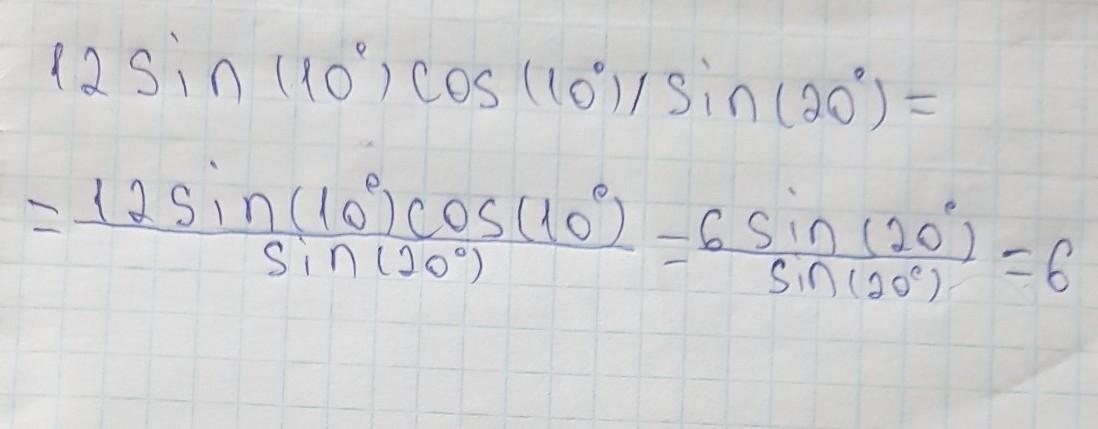 12 sin (10°) cos (10°) / sin (20°) =
= 12 sin (10°) cos (10°) / sin (20°) = 6 sin (20°) / sin (20°) = 6